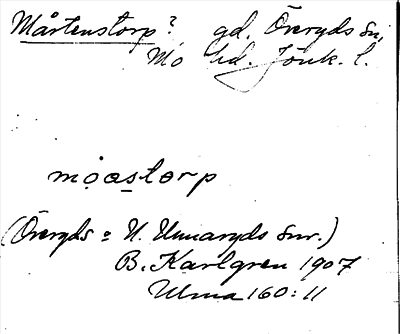 Mårtenstorp? gd. Öreryds sn,
Mo hd. Jönk. l.
mȯạstorp
(Öreryds o N. Unnaryds snr.)
B. Karlgren 1907
Ulma 160:11